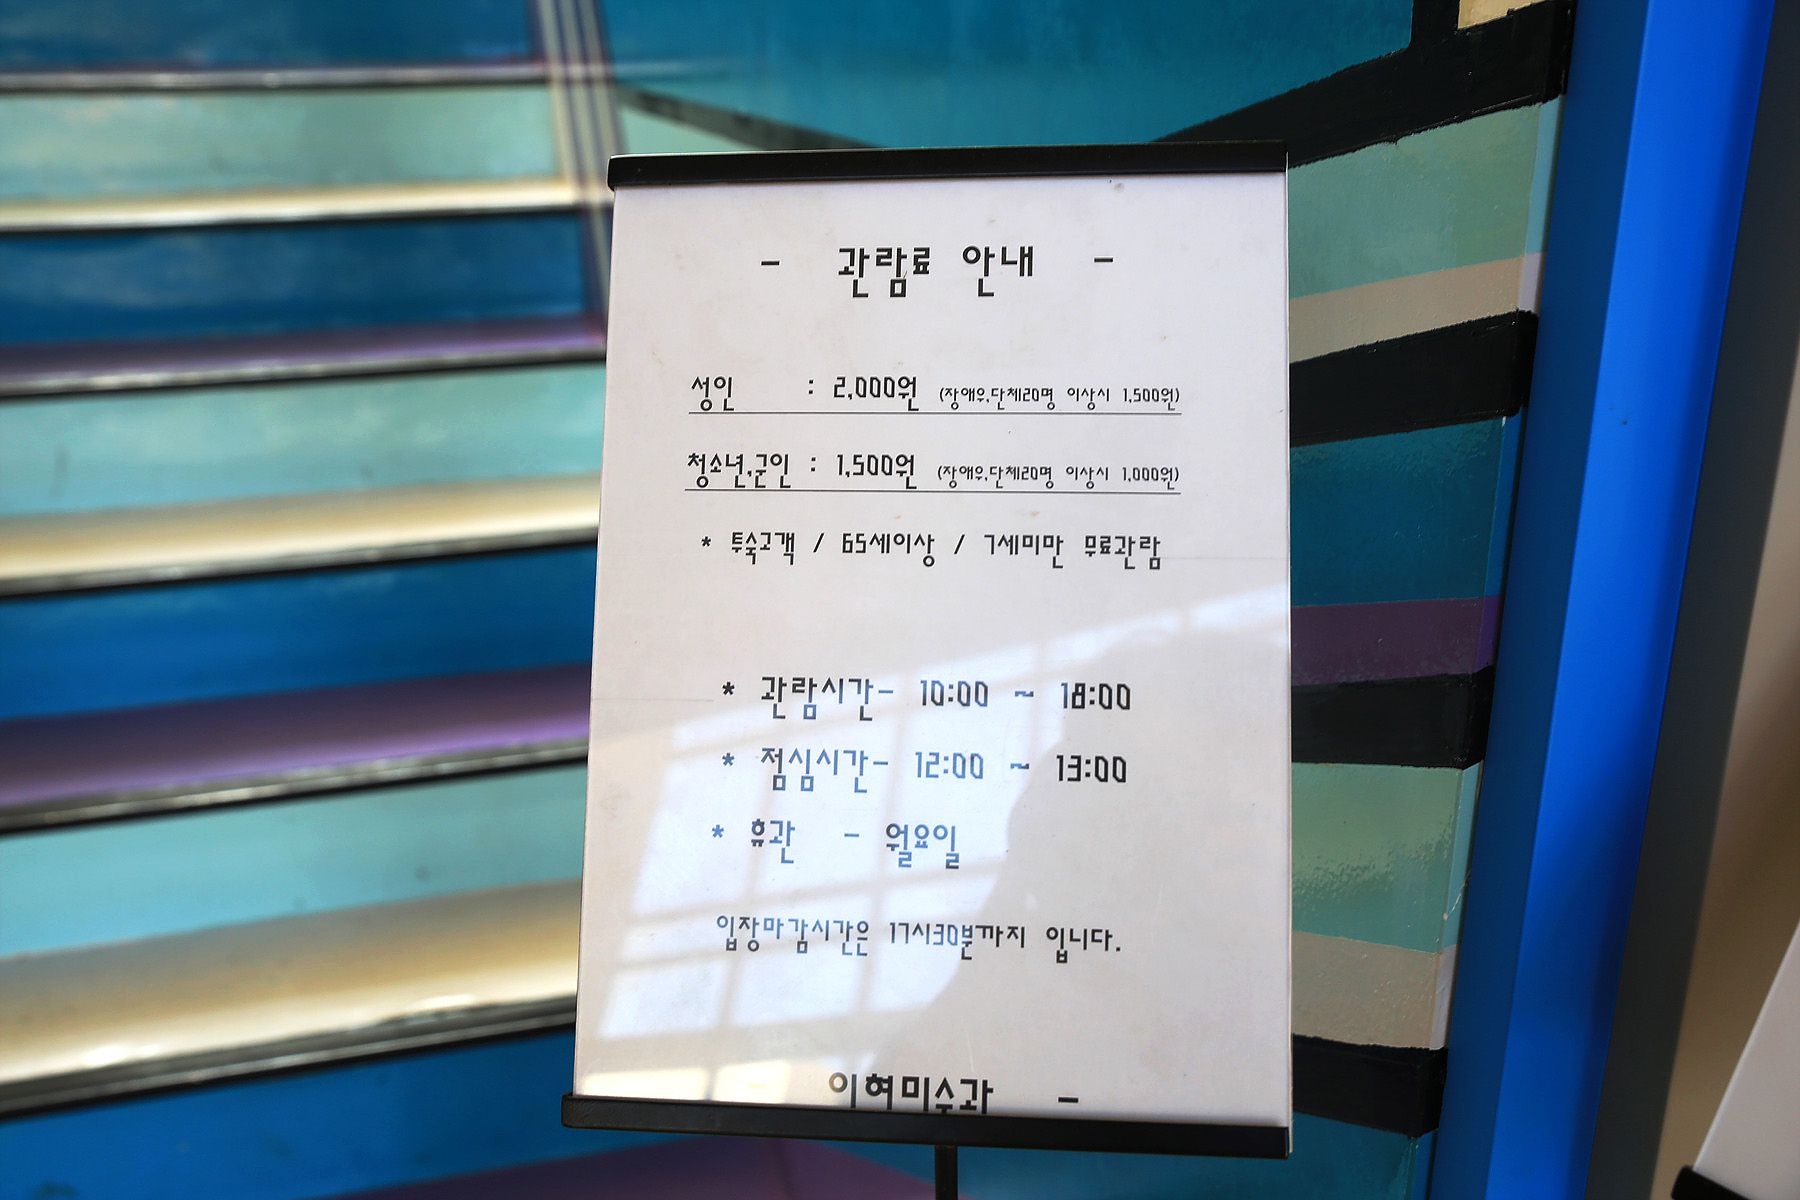 - 관람료 안내 -
성인 : 2,000원 (장애우,단체20명 이상시 1,500원)
청소년,군인 : 1,500원 (장애우,단체20명 이상시 1,000원)
* 투숙고객 / 65세이상 / 7세미만 무료관람
* 관람시간- 10:00 ~ 18:00
* 점심시간- 12:00 ~ 13:00
* 휴관 - 월요일
입장마감시간은 17시30분까지 입니다.